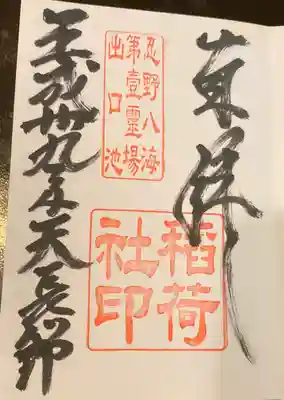 奉拝
忍野八海
第壹靈場
出口池
稻荷
社印
平成廿九年天長節